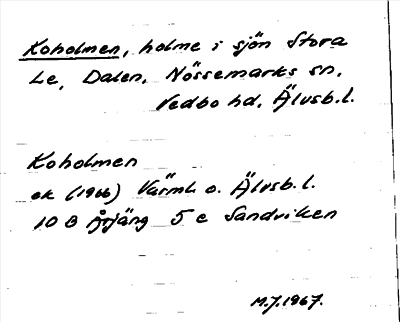 Koholmen, holme i sjön Stora
Le, Dalen, Nössemarks sn,
Vedbo hd, Älvsb. l.
Koholmen
ek (1966) Värml. o. Älvsb. l.
10 B Årjäng 5 e Sandviken
M.J. 1967.